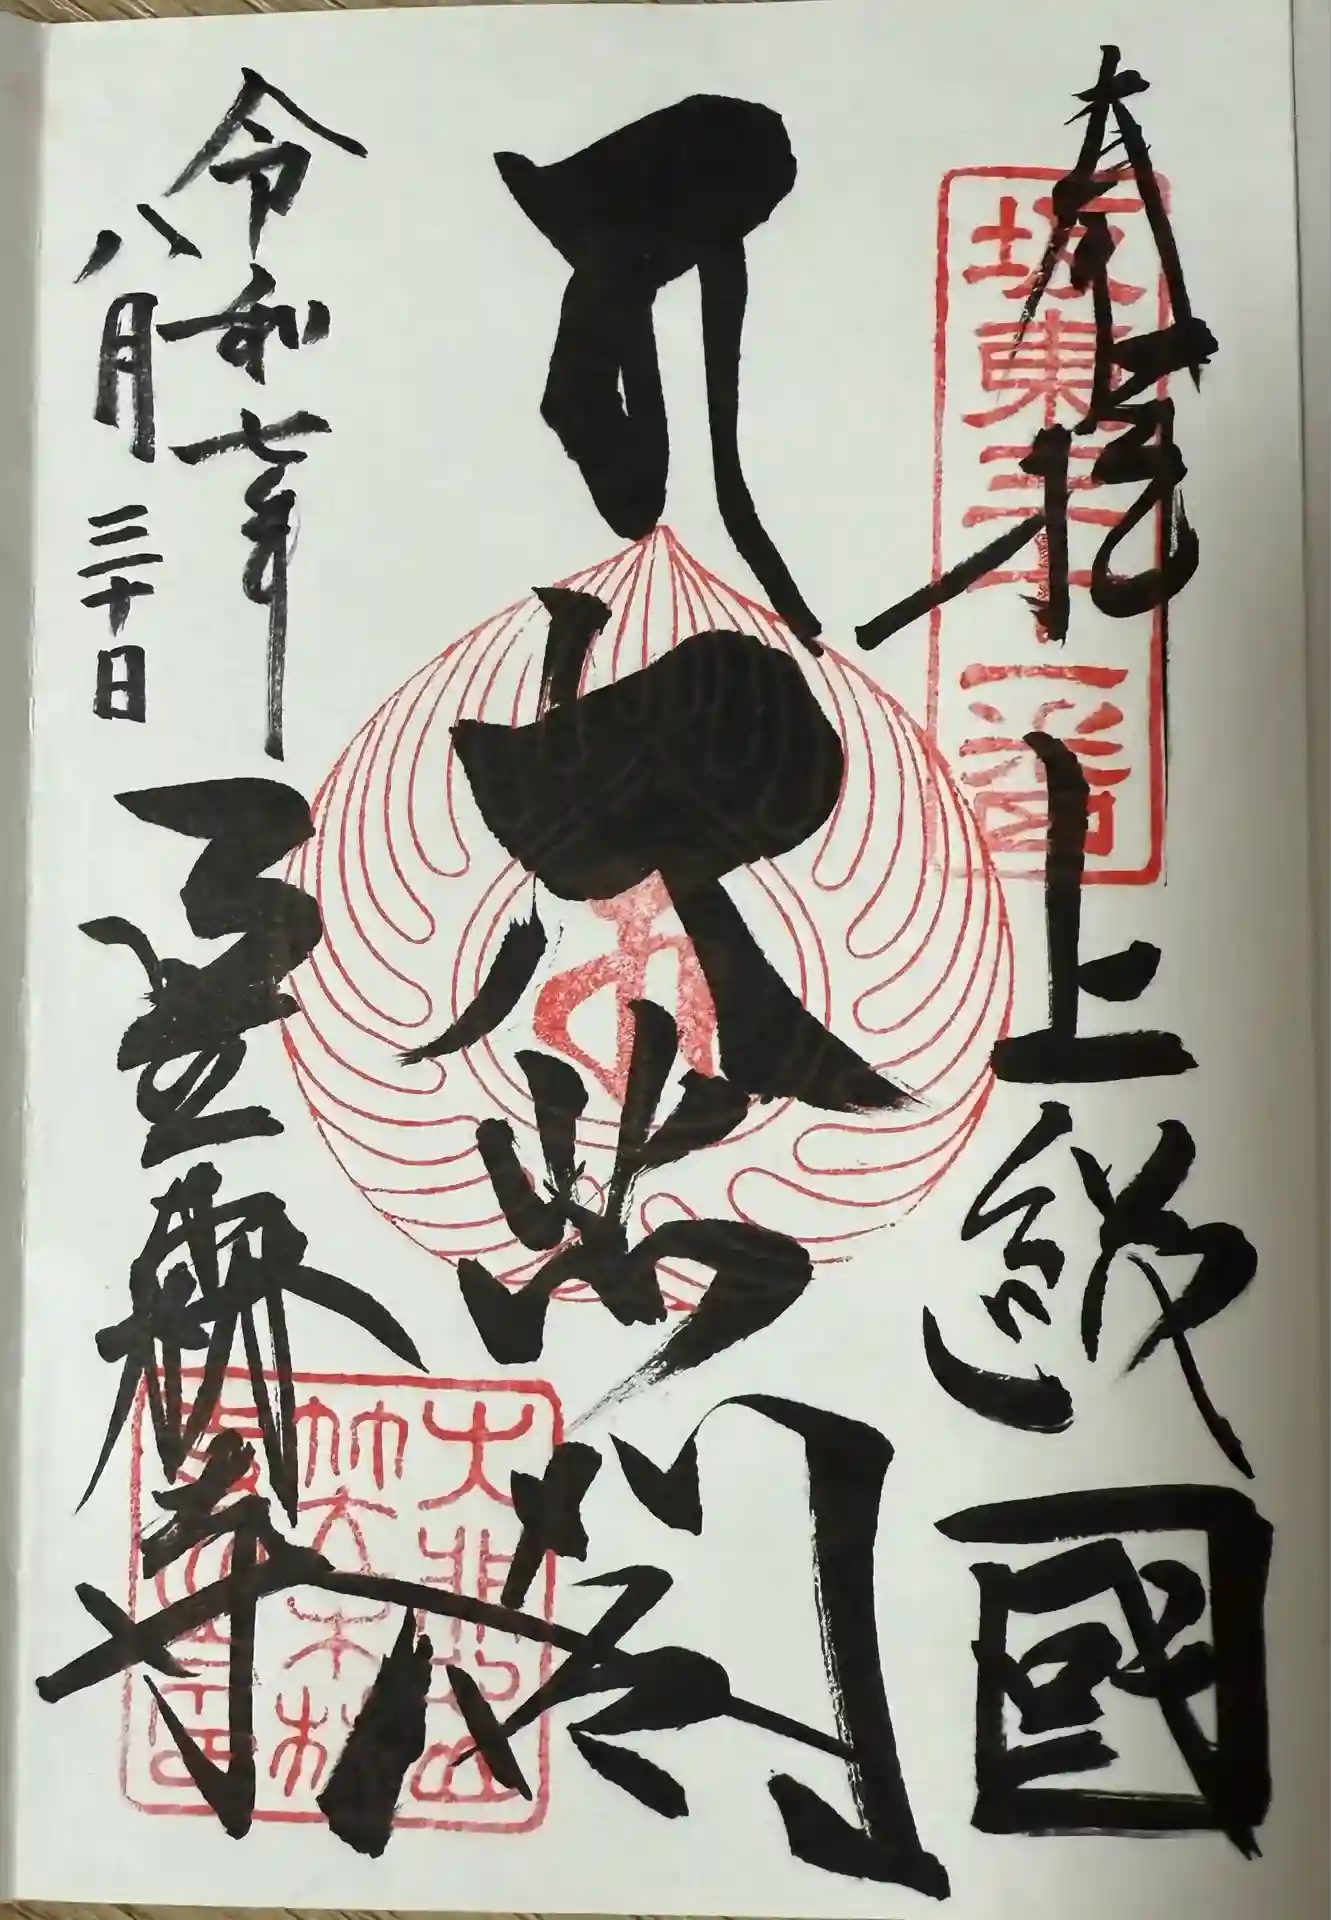 奉拝
上総國
坂東三十一番
大悲閣
令和七年
八月三十日
笠森寺
大悲山
笠森